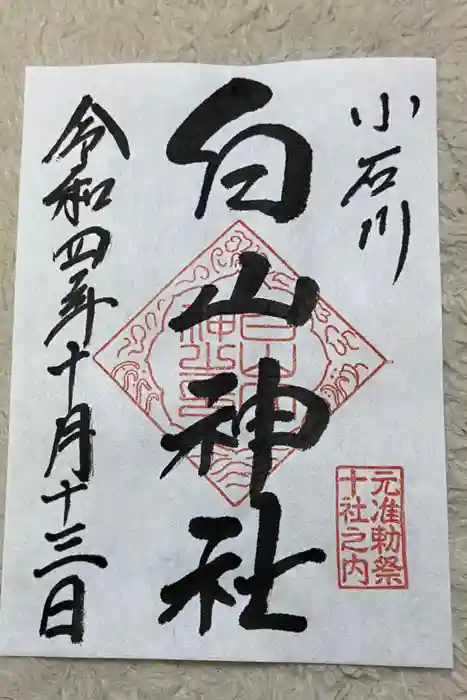 小石川
元准勅祭
十社之内
白山神社
令和四年十月十三日